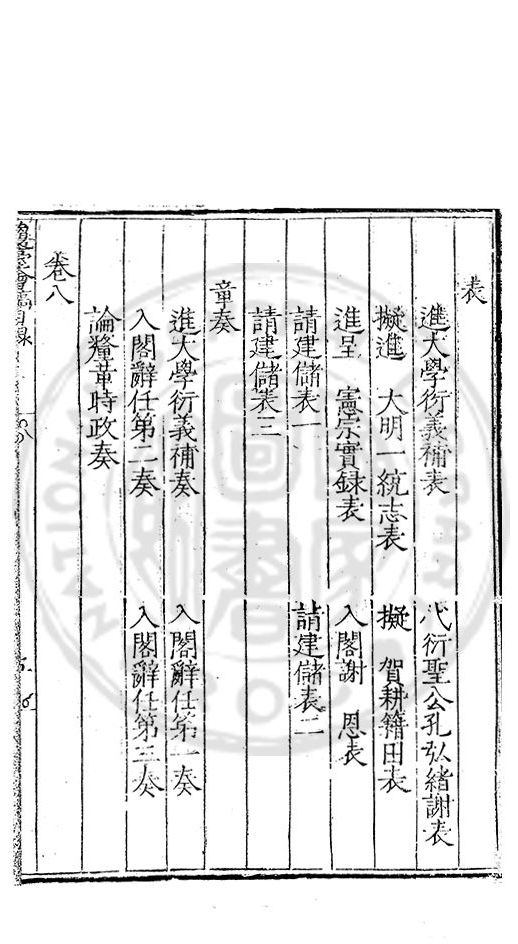 表
進大學衍義補表 代衍聖公孔弘緒謝表
擬進 大明一統志表 擬 賀耕籍田表
進呈 憲宗實録表 入閣謝 恩表
請建儲表一 請建儲表二
請建儲表三
章奏
進大學衍義補奏 入閣辭任第一奏
入閣辭任第二奏 入閣辭任第三奏
論釐革時政奏
卷八